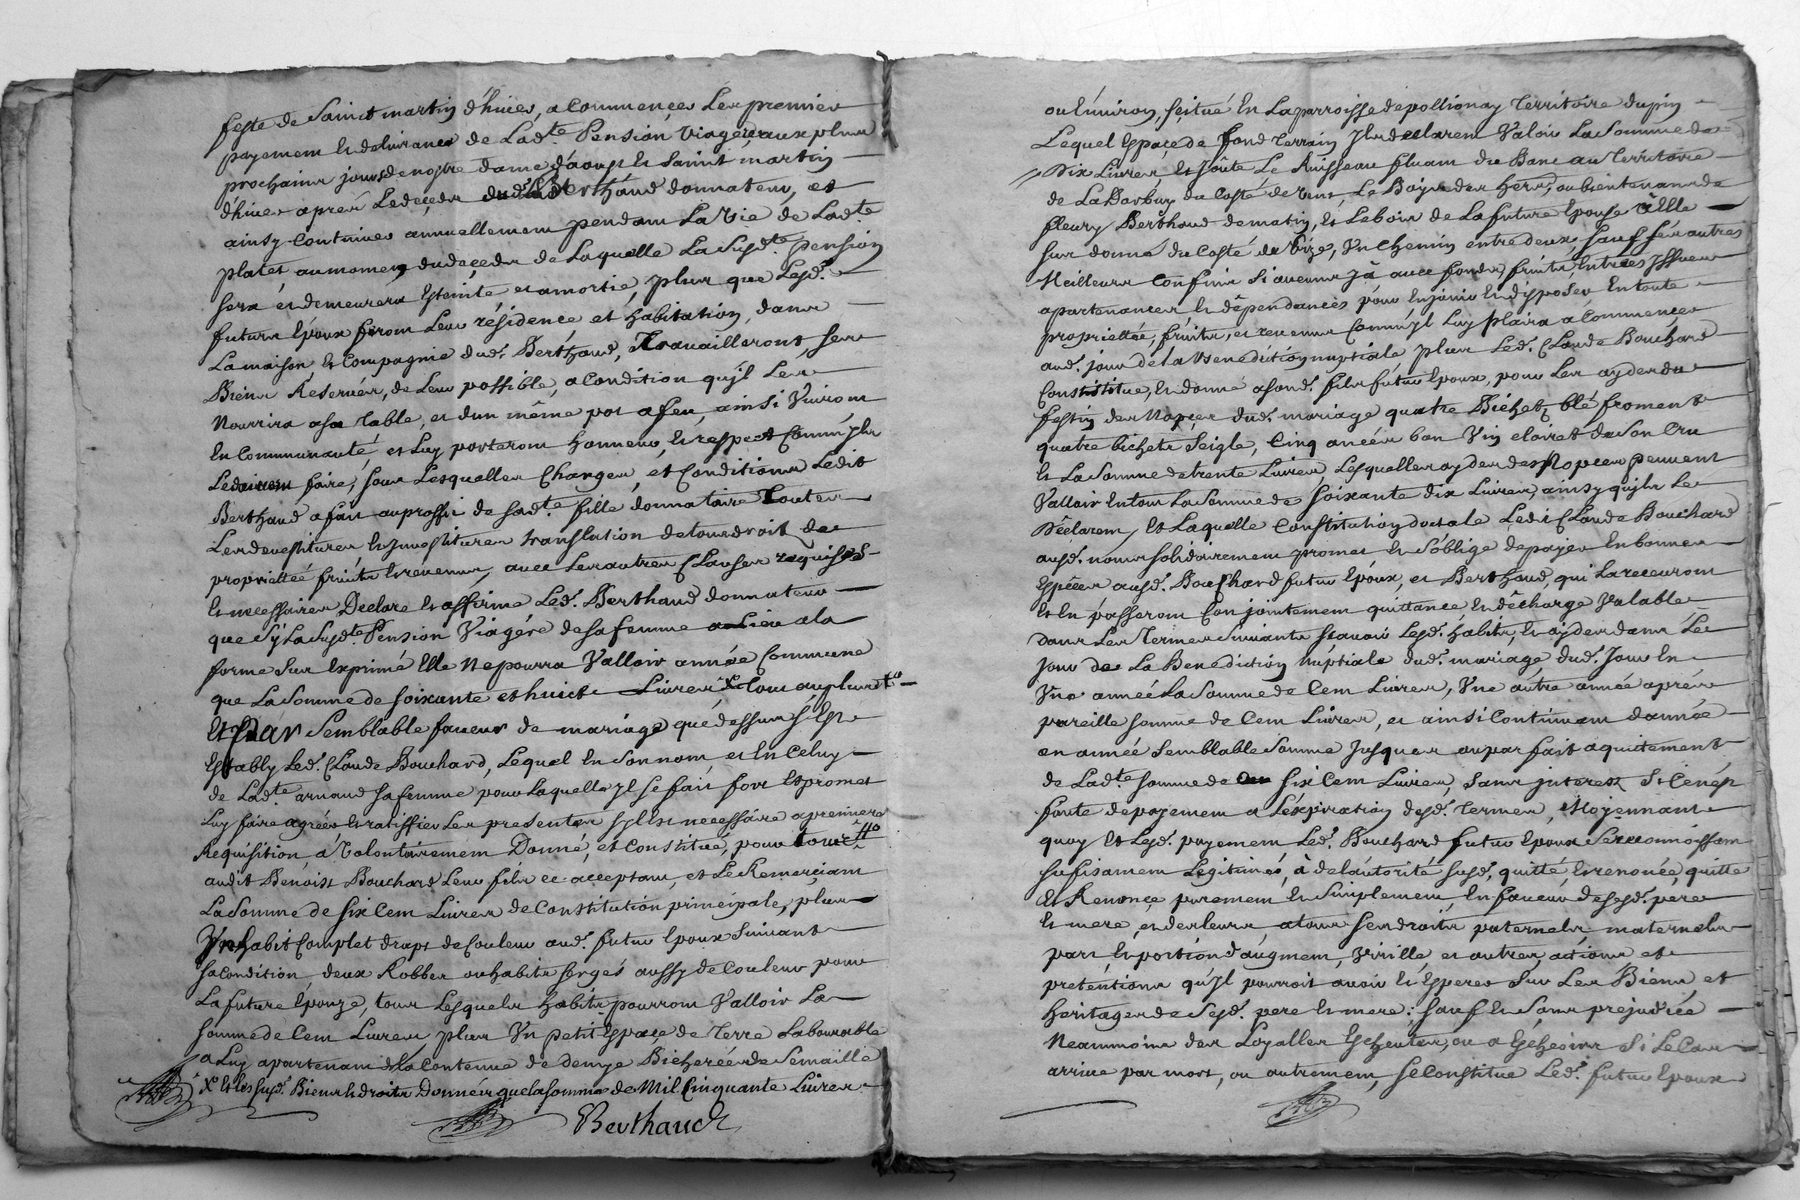 feste de Sainct martin d'hiver, a Commencer Les premier
payement et delivrance de Ladte. Pension Viagere aux plus
prochains jours de nostre dame d'aoust et Saint martin
d'hiver aprés Le decedz dudt. Berthaud donnateur, et
ainsy Continuer annuellement pendant La vie de Ladte.
platet, au moment du decedz de Laquelle La Susdte. pension
sera et demeurera Esteinte et amortie, plus que Lesd.
futurs Epoux feront Leur résidence et habitation, dans
La maison et Compagnie dud. Berthaud, Travailleront, ses
Biens Reservés, de Leur possible, a Condition qu'jl Les
Nourrira asa Table, et d'un même pot a feu, ainsi Vivront
En Communauté, et Luy porteront honneur, et respect Comm'jls
Le doivent faire, sous Lesquelles Charges, et Conditions Ledit
Berthaud a fait au proffit de sadte. fille donnataire Toutes
Les devestitures et jnvestitures translation de tous droits de
proprietteé fruits et revenus, avec Les autres Clauses requises
Et necessaires Declare et affirme Led. Berthaud donnateur
que Sy La Susdte Pension Viagére de sa femme a Lieu a la
forme Sus Exprimé Elle Ne pourra Valloir année Commune
que La Somme de soixante et huict Livres X Tout au plus
Et Par Semblable faveur de mariage que dessus s'Est
Establly Led. Claude Bouchard, Lequel En Son nom et En Celuy
de Ladte. arnaud sa femme pour Laquelle jl se fait fort Et promet
Luy faire agréer et ratiffier Les presentes sy Est necessaire a premiere
Requisition, á volontairement Donné, et Constitué, pour
audit Benoist Bouchard Leur fils ce acceptant, et Le Remerçiant
La Somme de six Cent Livres de Constitution principale, plus
Vn habit Complet draps de Couleur aud. futur Epoux Suivant
sa Condition, deux Robbes ou habits serges aussy de Couleur pour
La future Epouze, tous Lesquels habits pourront Valloir La
somme de Cent Livres, plus Vn petit Espaçe de Terre Labourable
a Luy apartenant de la Contenue de demye Bicherée de Semaille
X Et Les susd. Biens et droits Donnés que la somme de Mil Cinquante Livres
Berthaud
ou Environ, scitué En La parroisse de pollionay Territoire du pin
Lequel Espaçe de fond Terrain jls declarent Valoir La Somme de
Dix Livres et Joûte Le Ruisseau fluant du Banc au Territoire
de La Darbuy du Costé de vent, Le Bois des hers, ou bientenans de
fleury Berthaud de matin, Et Le bois de La future Epouse a Elle
sus donné du Costé de Bize, Vn Chemin entre deux, sauf ses autres
Meilleurs Confins si aucuns Jà avec fonds, fruits, Entrées Jssues
apartenances et dépendances pour En jouir et disposer En toute
proprietteé, fruits, et revenus Comm'jl Luy plaira a Commencer
aud. jour de La Benediction nuptiale plus Led. Claude Bouchard
Constitue, et donne a sond. fils futur Epoux, pour Les ayder du
festin des Nopçes dud. mariage quatre Bichets blé froment
quatre bichets seigle, Cinq anées bon Vin clairet de Son Cru
et La Somme de trente Livres Lesquelles ayde des Nopces peuvent
Valloir En tout La Somme de soixante dix Livres, ainsy qu'jls Le
Déclarent, Et Laquelle Constitution dotale Ledit Claude Bouchard
ausd. noms solidairement promet et s'oblige de payer En bonnes
Espéces ausd. Bouchard futur Epoux, et Berthaud, qui La recevront
Et En passeront Conjointement quittance et décharge Valable
dans Les Termes Suivants scavoir Lesd. habits, et ayde dans Le
jour de La Benediction Nuptiale dud. mariage, dud. Jour En
Vne année La Somme de Cent Livres, Vne autre année aprés
pareille somme de Cent Livres, et ainsi Continuant d'année
en année semblable Somme Jusques au parfait aquitement
de Ladte. somme de six Cent Livres, sans jnterest Si Ce n'est
faute de payement a L'éxpiration desd. Termes, Moyennant
quoy et Lesd. payement Led. Bouchard futur Epoux Se reconnoissant
sufisament Legitimés, à de L'autorité susd. quitté, et renoncé, quitte
et Renonçe purement et Simplement, En faveur de sesd. pere
Et mere, et des leurs, a tous ses droits paternels, maternels
part et portion d'augment, Virille et autres actions et
pretentions qu'jl pourroit avoir et Esperer Sur Les Biens et
heritages de Sesd. pere et mere; sauf et sans prejudice
Neanmoins des Loyalles Escheutes, ou a Escheoir Si Le Cas
arrive par mort, ou autrement, Se Constitue Led. futur Epoux